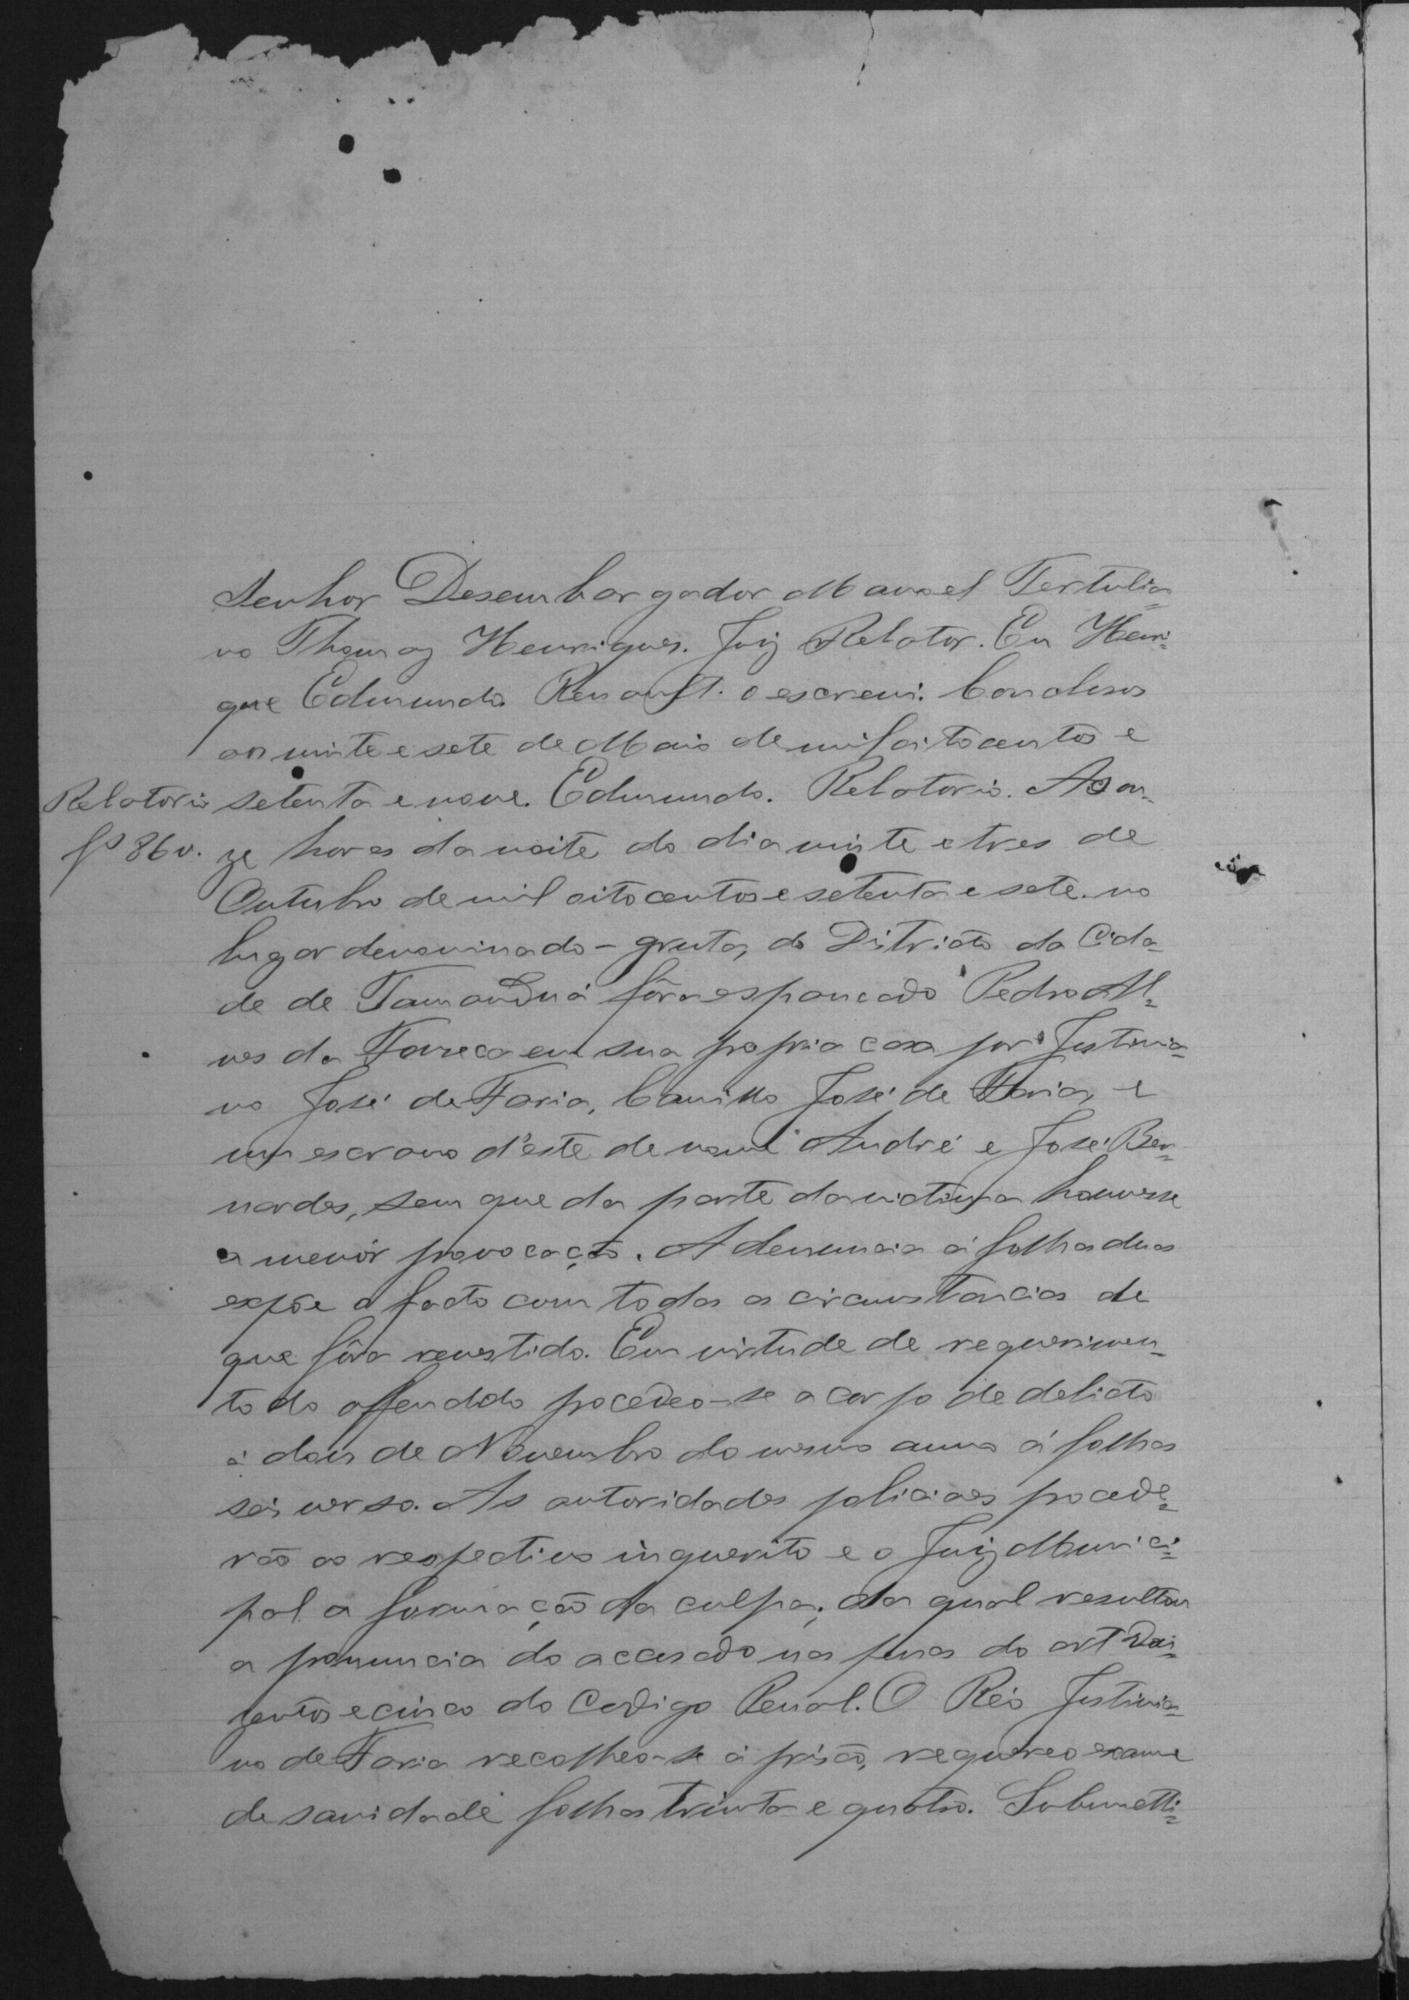 Senhor Desembargador Manoel Tertulia=
no Thomaz Henriques. Juiz Relator. Eu Henri=
que Edmundo Renault. o escrevi. Conclusos
aos vinte e sete de Maio de mil oitocentos e
Relatorio setenta e nove. Edmundo. Relatorio. As on=
fs 86 v. ze horas da noite do dia vinte e tres de
Outubro de mil oitocentos e setenta e sete. no
lugar denominado - gruta, do Districto da Cida=
de de Tamanduá fôra espancado Pedro Al=
ves da em sua propria casa por Justinia=
no José de Faria, Camillo José de Faria, e
um escravo d'este de nome André e José Ber=
nardes, sem que da parte da victima houvesse
a menór provocação. A denuncia á folhas duas
expõe o facto com todas as circunstancias de
que fôra revestido. Em virtude de requerimen=
to do offendido procedeo-se a corpo de delicto
á dois de Novembro do mesmo anno á folhas
seis verso. As autoridades policiaes procede=
rão ao respectivo inquerito e o Juiz Munici=
pal a formação da culpa; da qual resultou
a pronuncia do accusado nas penas do art Du=
zentos e cinco do Codigo Penal. O Réo Justinia=
no de Faria recolheo-se á prisão, requereo exame
de sanidade folhas trinta e quatro. Submetti=